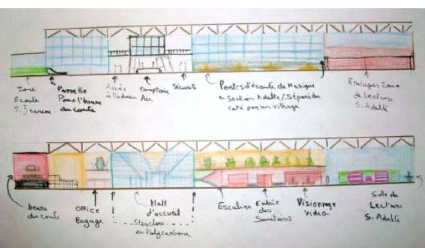 Zone
Ecoute
S. Jeunesse
Passerelle
Pour l'heure
du conte
Accès
Comptoir
Acc
Sécurité
Postes d'écoute de Musique
section Adulte / Séparé du
café par un vitrage
Zone
de Lecture
S. Adulte
heure
du conte
Office
Bagage
Hall
d'accueil
Structure
en Polycarbonate
Escalier
Entrée
des
Sanitaires
Visionnage
Vidéo
Salle de
Lecture
S. Adulte